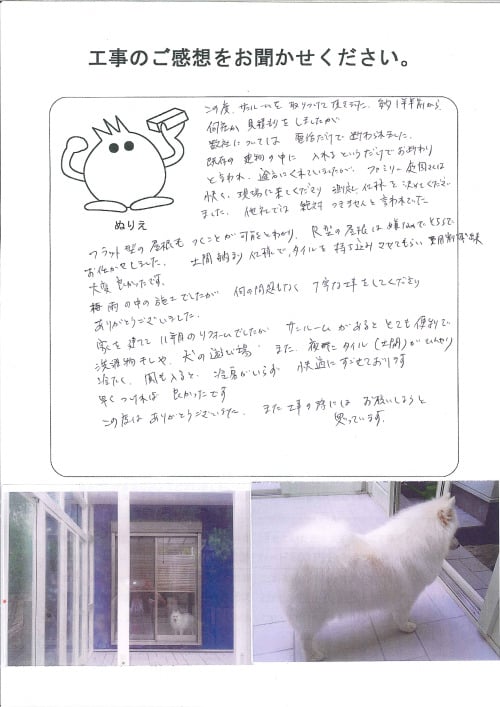 工事のご感想をお聞かせください。
この度、サンルームを取りつけて頂きました。約1年半前から、
何社か見積りをしましたが
数社については電話だけで断わられました。
既存の建物の中に入れるというだけでお断わり
と言われ、途方にくれていましたが、ファミリー庭園さんは
快く、現場に来てくださり 対応、仕様を決めてくださり
ました。他社では絶対できませんと言われていた
ぬりえ
フラット型の屋根もつくことが可能とわかり、R型の屋根は嫌なので、
お任せしました。土間納まり仕様で、タイルを持ち込みさせてもらい、費用削減出来
大変良かったです。
梅雨の中の施工でしたが 何の問題もなく 丁寧な工事をしてくださり
ありがとうございました。
家を建てて11年目のリフォームでしたが サンルームがあると とても便利で
洗濯物干しや、犬の遊び場 また、夜時にタイル(土間)がひんやり
冷たく、風も入ると、冷房がいらず 快適にすごせております
早くつければ良かったです
この度はありがとうございました。 また工事の際にはお願いしようと
思っています。